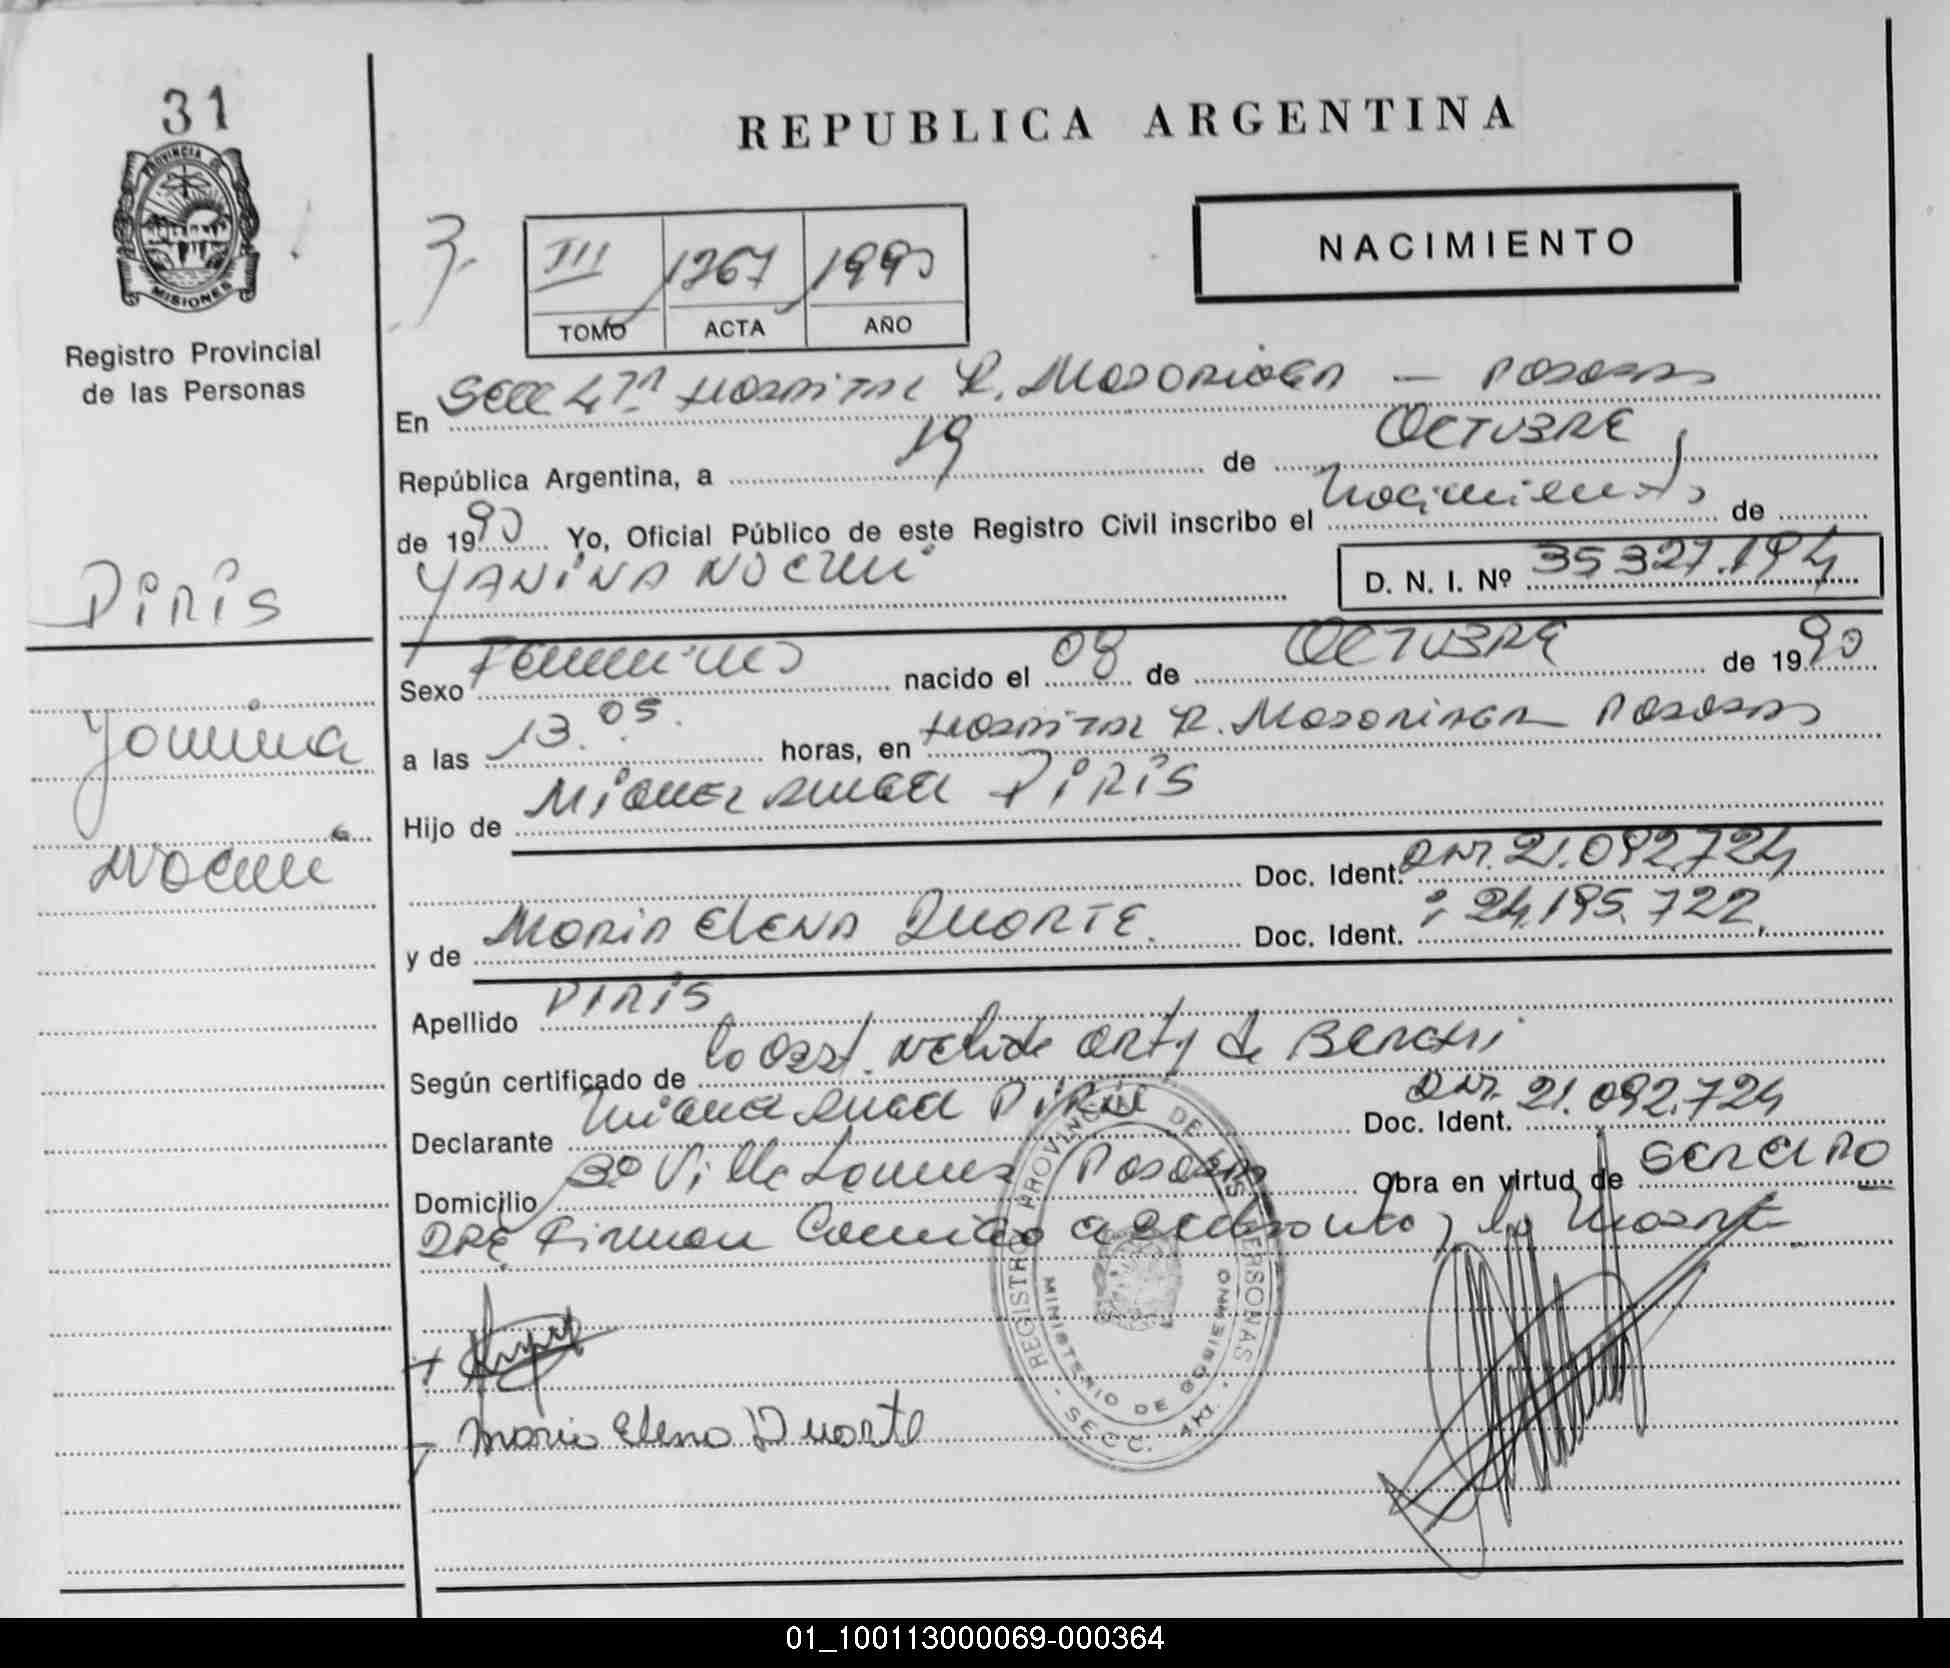 31
PROVINCIA DE
MISIONES
Registro Provincial
de las Personas
REPUBLICA ARGENTINA
NACIMIENTO
3.
III 1267 1990
TOMO ACTA AÑO
En Secc 4ta Hospital R. Madariaga — Posadas
República Argentina, a 19 de OCTUBRE
de 1990 Yo, Oficial Público de este Registro Civil inscribo el Nacimiento de
YANINA NOEMI
D. N. I. Nº 35327.194
PIRIS
Yanina
Noemí
Sexo Femenino nacido el 08 de OCTUBRE de 1990
a las 13.05. horas, en Hospital R. Madariaga Posadas
Hijo de Miguel Angel PIRIS
Doc. Ident. DNI. 21.092.724
y de Maria Elena Duarte. Doc. Ident. : 24.195.722.
Apellido PIRIS
Según certificado de la Obst. Nelida Ortiz de
Declarante Miguel Angel Piris Doc. Ident. DNI. 21.092.724
Domicilio Bº Villa Posadas Obra en virtud de ser el PA
DRE. Firman Conmigo el y la Madre.
REGISTRO PROVINCIAL DE LAS PERSONAS
MINISTERIO DE GOBIERNO
SECC. 4ta.
Maria Elena Duarte
01_100113000069-000364